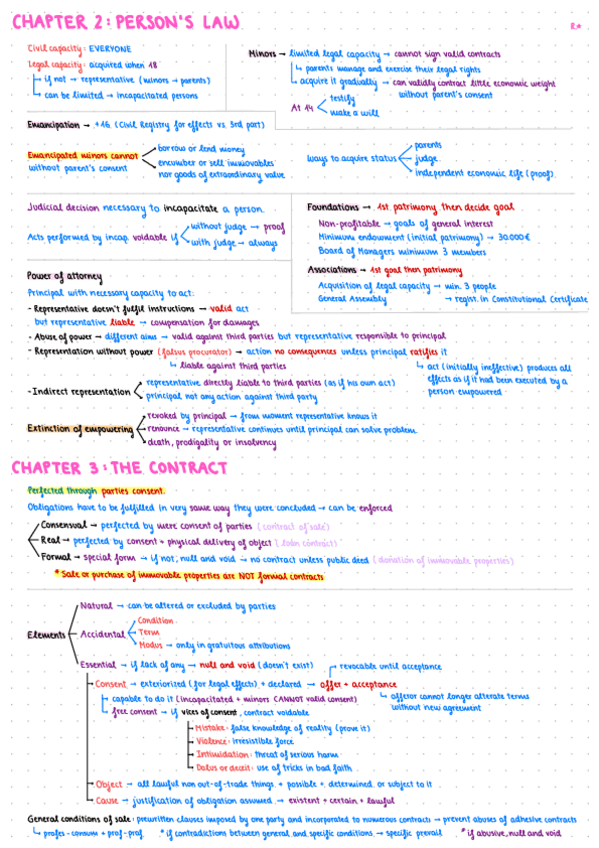 CHAPTER 2: PERSON'S LAW
R*
Civil capacity: EVERYONE
Legal capacity: acquired when 18
if not → representative (minors → parents)
can be limited → incapacitated persons
Minors → limited legal capacity → cannot sign valid contracts
parents manage and exercise their legal rights
acquire it gradually → can validly contract little economic weight
without parent's consent
At 14
testify
make a will
Emancipation → +16 (Civil Registry for effects vs 3rd part)
Emancipated minors cannot
without parent's consent
borrow or lend money
encumber or sell immovables
nor goods of extraordinary value
Ways to acquire status
parents
judge
independent economic life (proof)
Judicial decision necessary to incapacitate a person.
Acts performed by incap. voidable if
without judge → proof
with judge → always
Foundations → 1st patrimony then decide goal
Non-profitable → goals of general interest
Minimum endowment (initial patrimony) → 30.000€
Board of Managers minimum 3 members
Associations → 1st goal then patrimony
Acquisition of legal capacity → min. 3 people
General Assembly → regist. in Constitutional Certificate
Power of attorney
Principal with necessary capacity to act:
- Representative doesn't fulfil instructions → valid act
but representative liable → compensation for damages
- Abuse of power → different aims → valid against third parties but representative responsible to principal
- Representation without power (falsus procurator) → action no consequences unless principal ratifies it
liable against third parties
act (initially ineffective) produces all
effects as if it had been executed by a
person empowered
- Indirect representation
representative directly liable to third parties (as if his own act)
principal not any action against third party
Extinction of empowering
revoked by principal → from moment representative knows it
renounce → representative continues until principal can solve problem
death, prodigality or insolvency
CHAPTER 3: THE CONTRACT
Perfected through parties consent.
Obligations have to be fulfilled in very same way they were concluded → can be enforced
Consensual → perfected by mere consent of parties (contract of sale)
Real → perfected by consent + physical delivery of object (loan contract)
Formal → special form → if not, null and void → no contract unless public deed (donation of immovable properties)
* Sale or purchase of immovable properties are NOT formal contracts
Elements
Natural → can be altered or excluded by parties
Accidental
Condition
Term
Modus → only in gratuitous attributions
Essential → if lack of any → null and void (doesn't exist)
revocable until acceptance
Consent → exteriorized (for legal effects) + declared → offer + acceptance
offeror cannot longer alterate terms
without new agreement
capable to do it (incapacitated + minors CANNOT valid consent)
free consent → if vices of consent, contract voidable
Mistake: false knowledge of reality (prove it)
Violence: irresistible force
Intimidation: threat of serious harm
Dolus or deceit: use of tricks in bad faith
Object → all lawful non out-of-trade things + possible + determined or subject to it
Cause → justification of obligation assumed → existent + certain + lawful
General conditions of sale: prewritten clauses imposed by one party and incorporated to numerous contracts → prevent abuses of adhesive contracts
profes-consum + prof-prof * if contradictions between general and specific conditions → specific prevail * if abusive, null and void